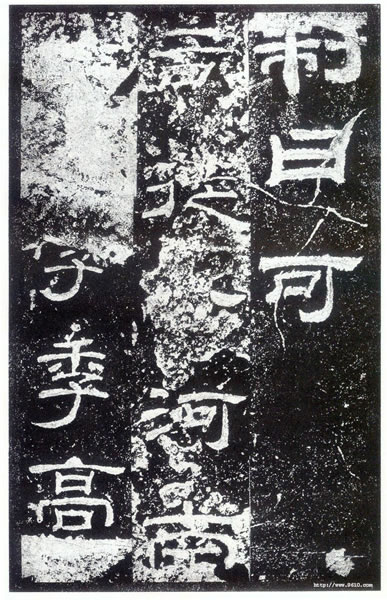 制曰可
司徒公河南
字季高
http://www.9610.com